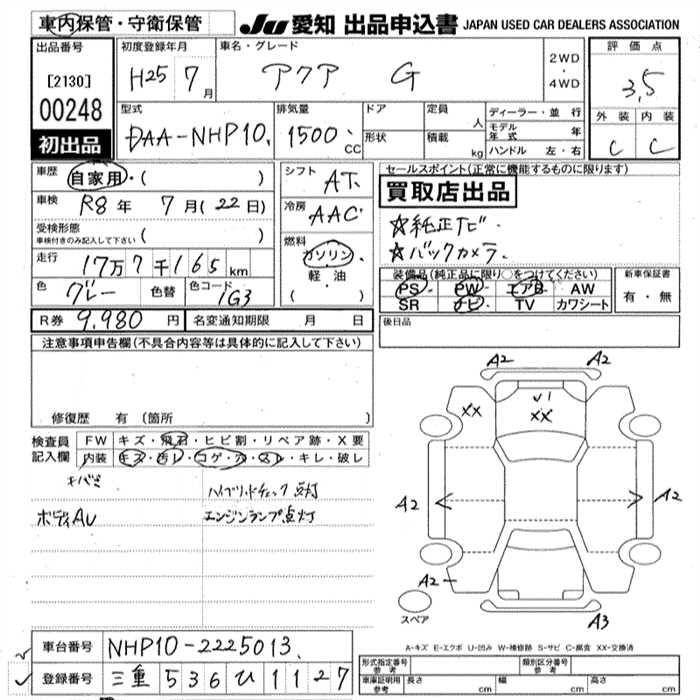 車内保管・守衛保管 JU 愛知 出品申込書 JAPAN USED CAR DEALERS ASSOCIATION
出品番号 初度登録年月 車名・グレード 評価点
[2130] H25 7月 アクア G 2WD・4WD 3,5
00248 型式 排気量 ドア 定員 人 ディーラー・並行 外装 内装
初出品 DAA-NHP10. 1500 CC 形状 積載 kg モデル年式 年 C C
ハンドル 左・右
車歴 自家用・( ) シフト AT. セールスポイント(正常に機能するものに限ります)
車検 R8年 7月(22日) 冷房 AAC 買取店出品
受検形態 車検付きのみ記入して下さい ( ) ☆純正ナビ.
走行 17万7千165km 燃料 ガソリン・軽油 ( ) ☆バックカメラ.
色 グレー 色替 色コード 1G3 装備品(純正品に限り○をつけてください) 新車保証書
PS・ PW・ エアB・ AW 有・無
SR ナビ・ TV カワシート
R券 9,980円 名変通知期限 月 日 後日品
注意事項申告欄(不具合内容等は具体的に記入して下さい)
修復歴 有(箇所 )
検査員記入欄 FW キズ・飛石・ヒビ割・リペア跡・X要
内装 キズ・汚レ・コゲ・穴・スレ・キレ・破レ
キバミ ハイブリッドチェック点灯
ボディAU エンジンランプ点灯
A2 A2
XX √1
XX
A2 A2
A2
A3
スペア
A-キズ E-エクボ U-凹み W-補修跡 S-サビ C-腐食 XX-交換済
車台番号 NHP10-2225013.
登録番号 三重 536 ひ 1127
形式指定番号 参考 類別区分番号 参考
車庫証明用 参考 長さ cm 幅 cm 高さ cm